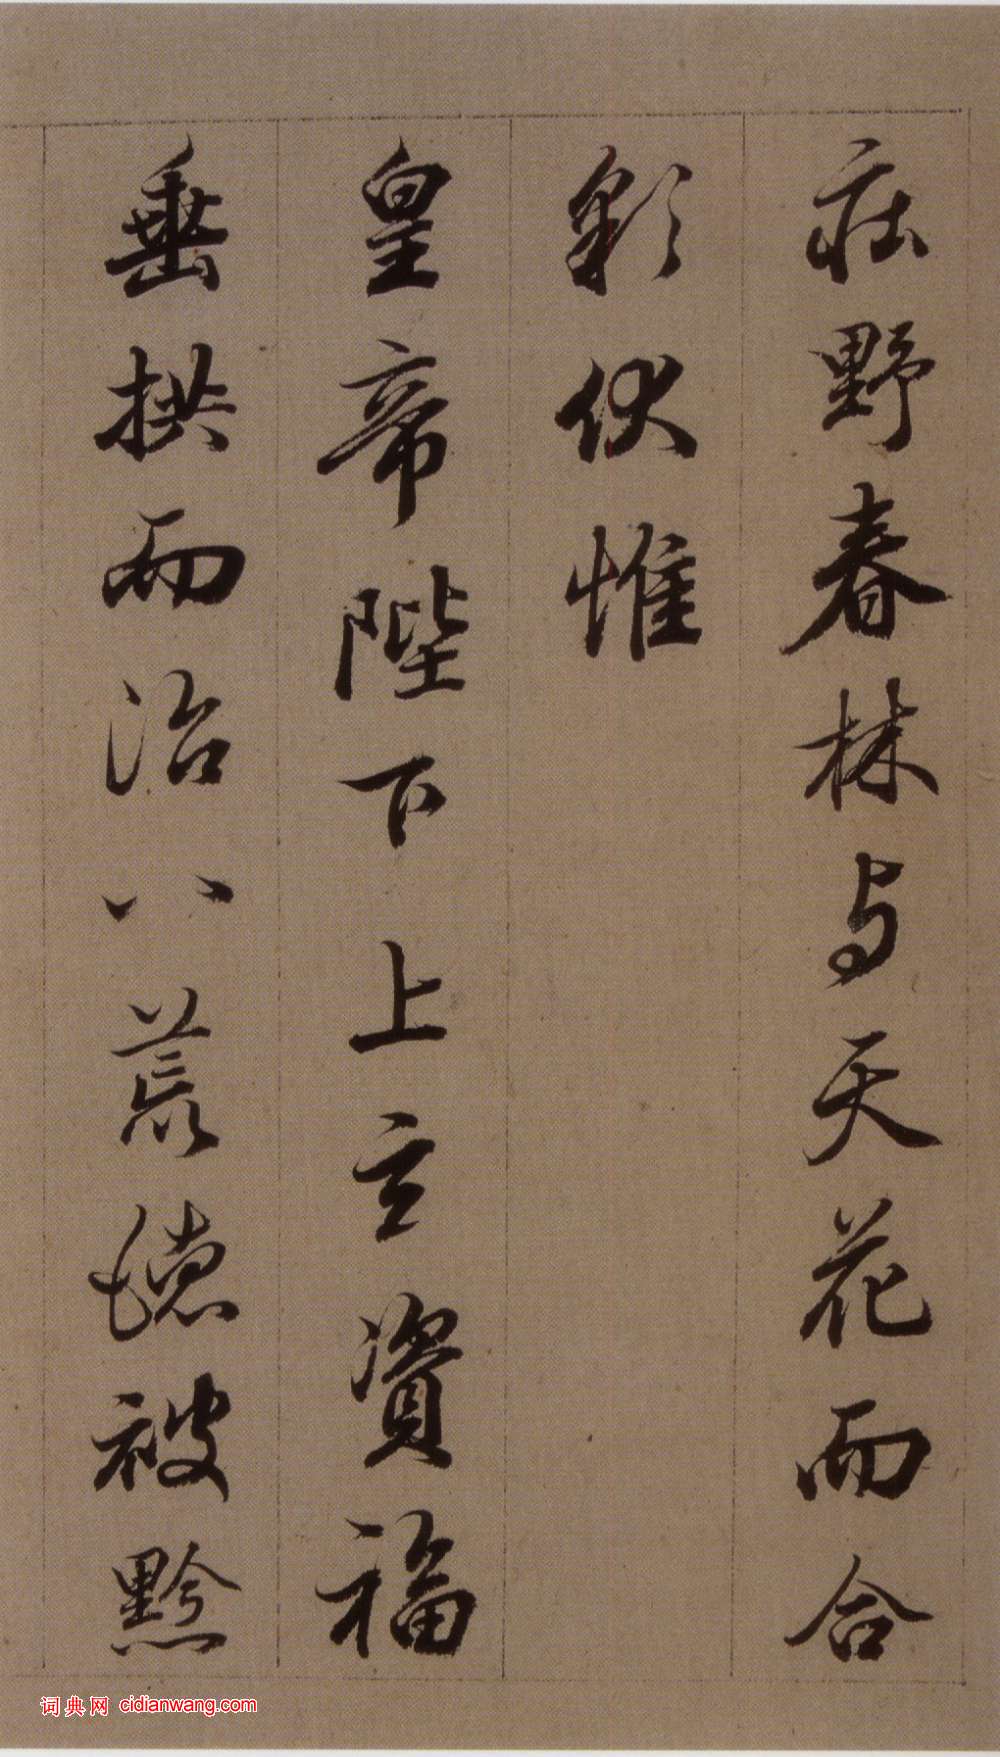 庄野春林与天花而合
彩伏惟
皇帝陛下上玄資福
垂拱而治八荒德被黔
词典网 cidianwang.com